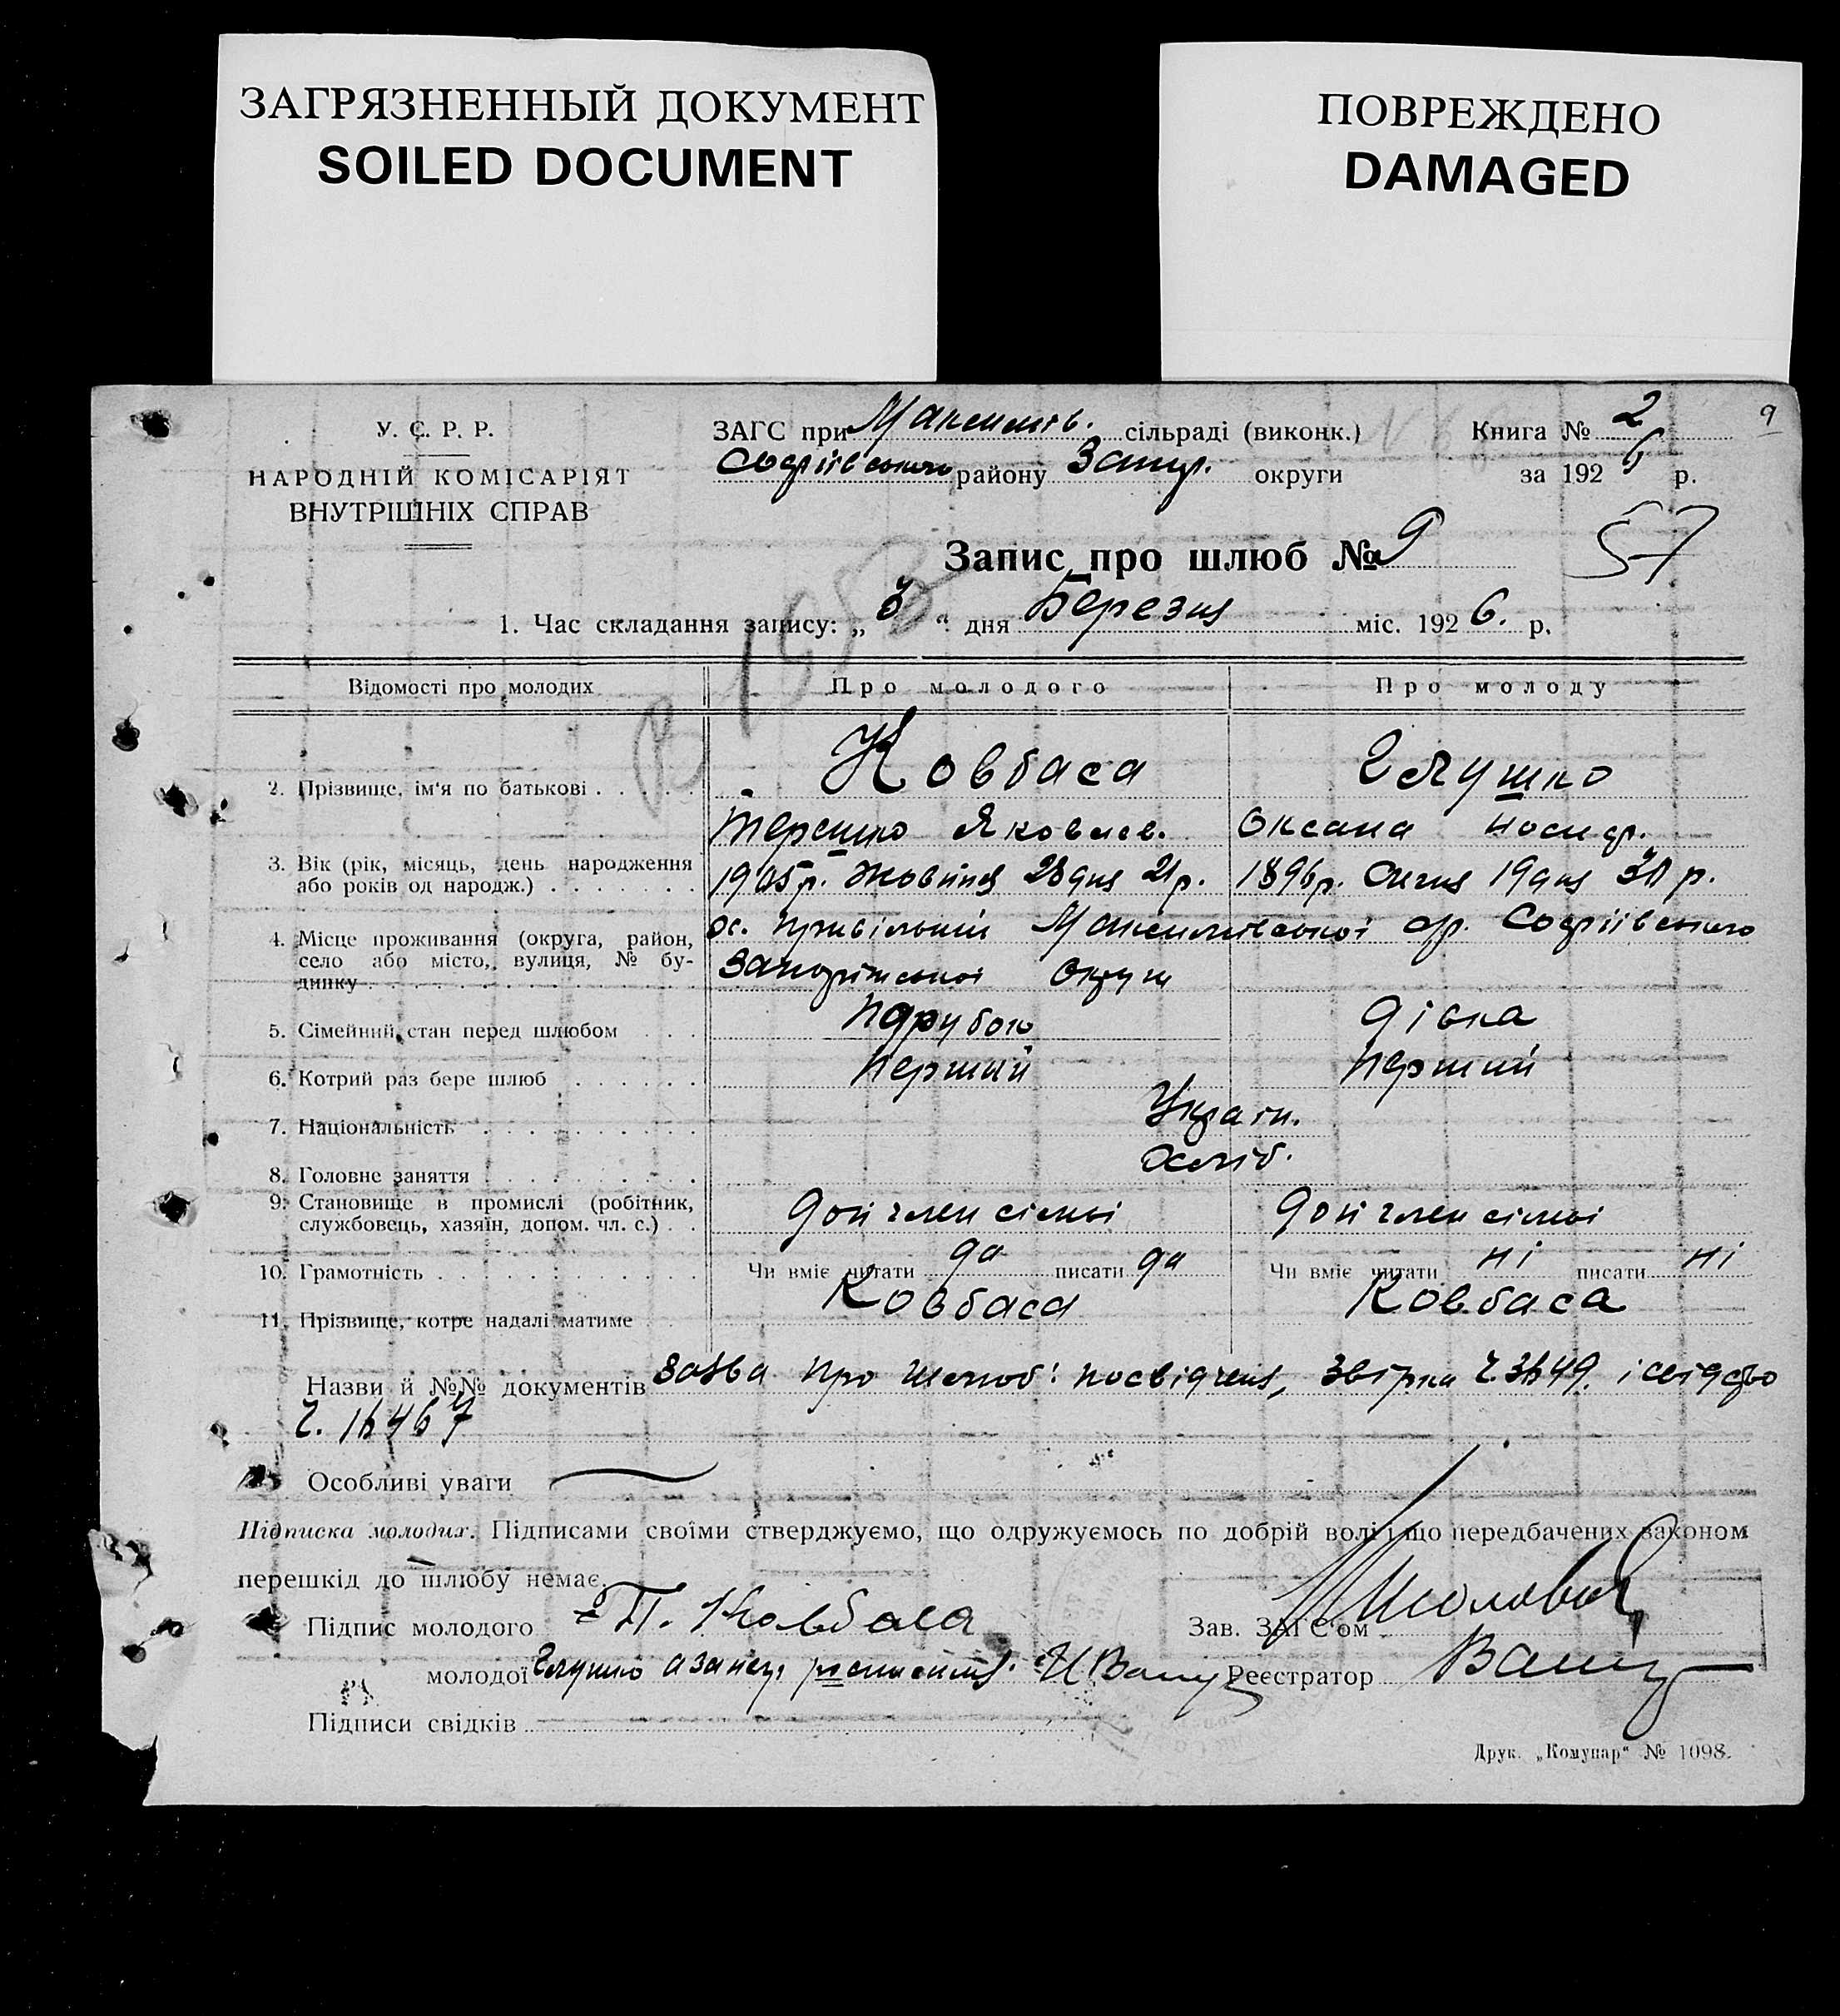 ЗАГРЯЗНЕННЫЙ ДОКУМЕНТ
SOILED DOCUMENT
ПОВРЕЖДЕНО
DAMAGED
У. С. Р. Р.
НАРОДНІЙ КОМІСАРІЯТ
ВНУТРІШНІХ СПРАВ
ЗАГС при Максимів. сільраді (виконк.)
Софіївського району Запор. округи
Книга № 2
9
за 1926 р.
Запис про шлюб № 9
57
1. Час складання запису: „ “ дня Березня міс. 1926. р.
Відомості про молодих Про молодого Про молоду
2. Прізвище, ім'я по батькові Ковбаса Глушко
Терешко Яковлев. Оксана
3. Вік (рік, місяць, день народження
або років од народж.) 1905р. Жовтня 28 дня 21 р. 1896р. Січня 19 дня 30 р.
4. Місце проживання (округа, район,
село або місто, вулиця, № бу-
динку ос. Привільний Максимівської Софіївського
Запоріжської Округи
5. Сімейний стан перед шлюбом Парубок дівка
6. Котрий раз бере шлюб Перший Перший
7. Національність Україн.
8. Головне заняття Хліб.
9. Становище в промислі (робітник,
службовець, хазяїн, допом. чл. с.) доп член сімьі доп член сімьі
10. Грамотність Чи вміє читати да писати да Чи вміє читати ні писати ні
11. Прізвище, котре надалі матиме Ковбаса Ковбаса
Назви й №№ документів Заява про шлюб: посвідченя,
Особливі уваги
Підписка молодих. Підписами своїми стверджуємо, що одружуємось по добрій волі і що передбачених законом
перешкід до шлюбу немає.
Підпис молодого Т. Ковбаса
Зав. ЗАГС'ом
молодої Глушко а за неї
Реєстратор
Підписи свідків
Друк. „Комунар“ № 1098.